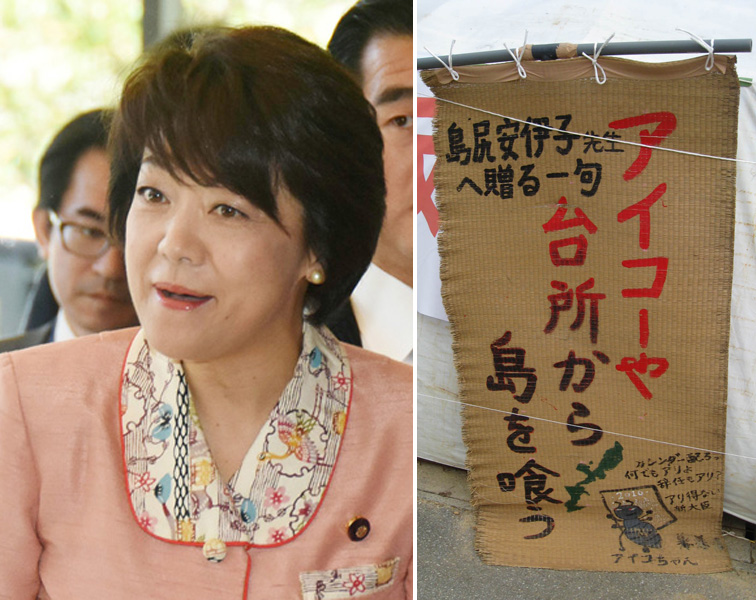 アイコーや
島尻安伊子先生
へ贈る一句
台所から
島を喰う
カレンダー配ろう
何でもアリよ
辞任もアリ?
アリ得ない
新大臣
アイコちゃん